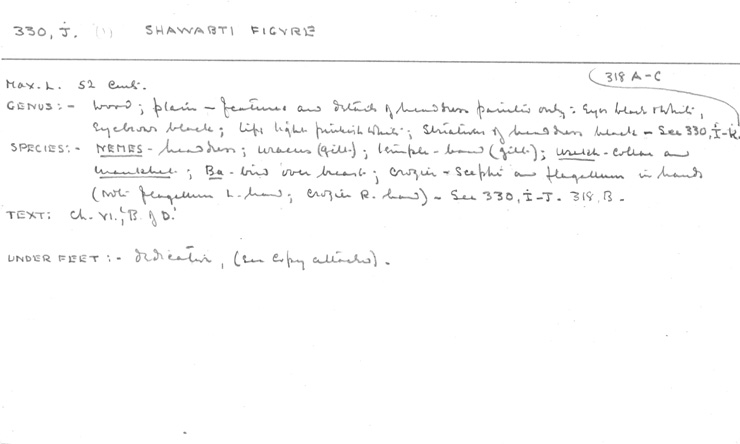 330, J. (1) SHAWABTI FIGVRE
318 A-C
Max. L. 52 Cent.
GENUS:- Wood; plain - features and details of headdress painted only: Eyes black & white,
Eyebrows black; lips light pinkish white; Striations of headdress black - See 330, I-K.
SPECIES:- NEMES-headdress; uraeus (gilt); temple-band (gilt); Wesekh-collar and
mankhet; Ba-bird over breast; Crozier-Sceptre and flagellum in hands
(Note flagellum L. hand; Crozier R. hand) - See 330, I-J. 318, B.
TEXT: Ch. VI., 'B. of D.'
UNDER FEET:- dedication, (see copy attached).